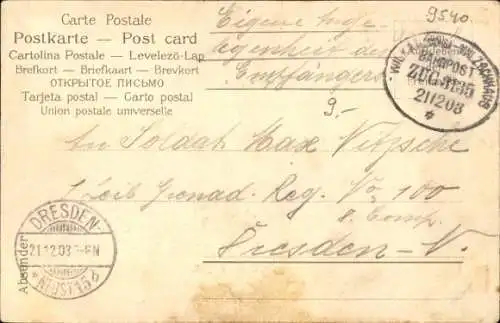 Carte Postale
Postkarte — Post card
Cartolina Postale — Levelező-Lap
Brefkort — Briefkaart — Brevkort
ОТКРЫТОЕ ПИСЬМО
Tarjeta postal — Carto postal
Union postale universelle
Eigene Ange-
legenheit des
Empfängers
9540
9.-
BAHNPOST
ZUG 3115
21 12 03
An Soldat Max Nitzsche
1 Leib Grenad. Reg. No. 100
8. Comp.
Dresden-N.
DRESDEN-
21.12.03
NEUST. 15 b
Absender